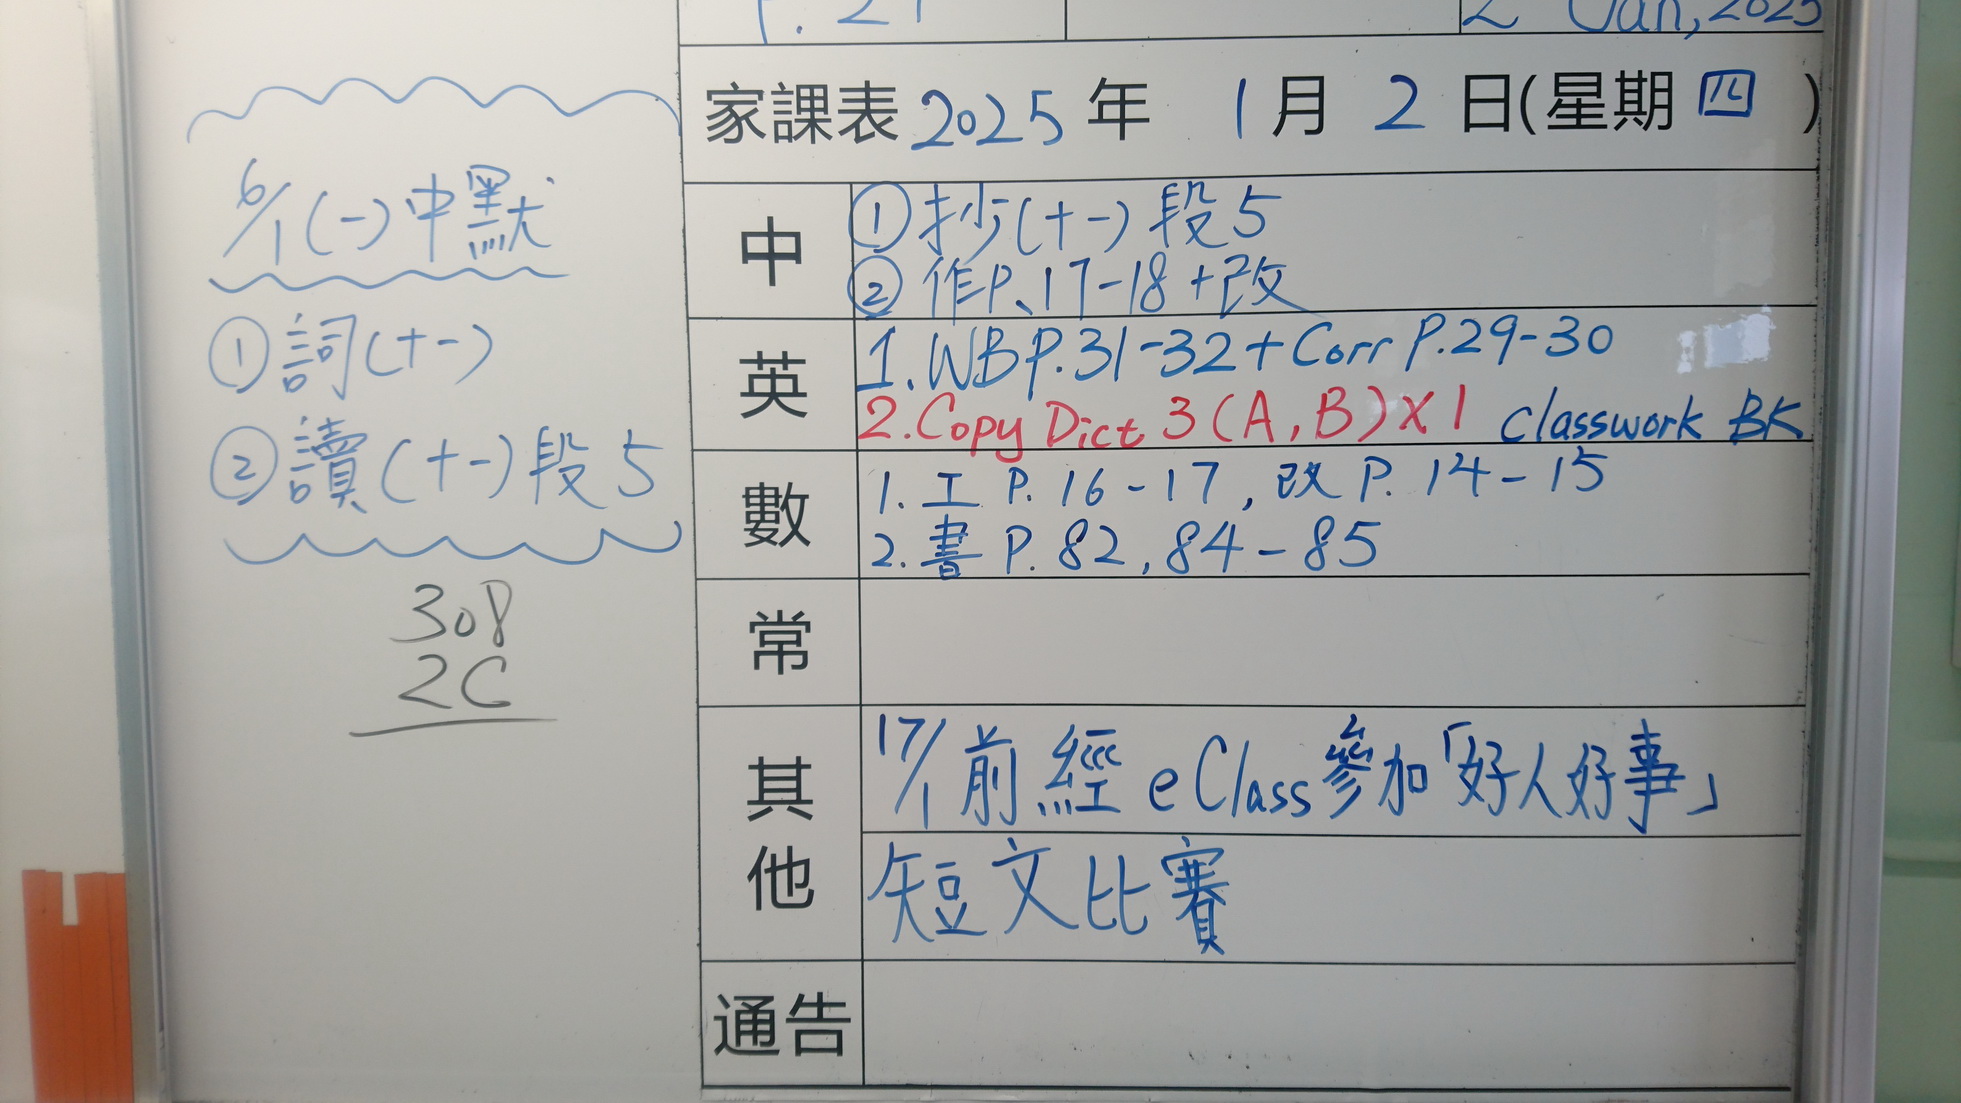 P. 21
2 Jan, 2025
家課表 2025 年 1 月 2 日(星期 四 )
中
①抄(十一)段5
②作P.17-18+改
英
1. WB P.31-32+Corr P.29-30
2. Copy Dict 3 (A, B) X 1 Classwork BK
數
1. 工 P. 16-17, 改 P. 14-15
2. 書 P. 82, 84-85
常
其他
17/1前經 eClass參加「好人好事」
短文比賽
通告
6/1(一)中默
①詞(十一)
②讀(十一)段5
308
2C